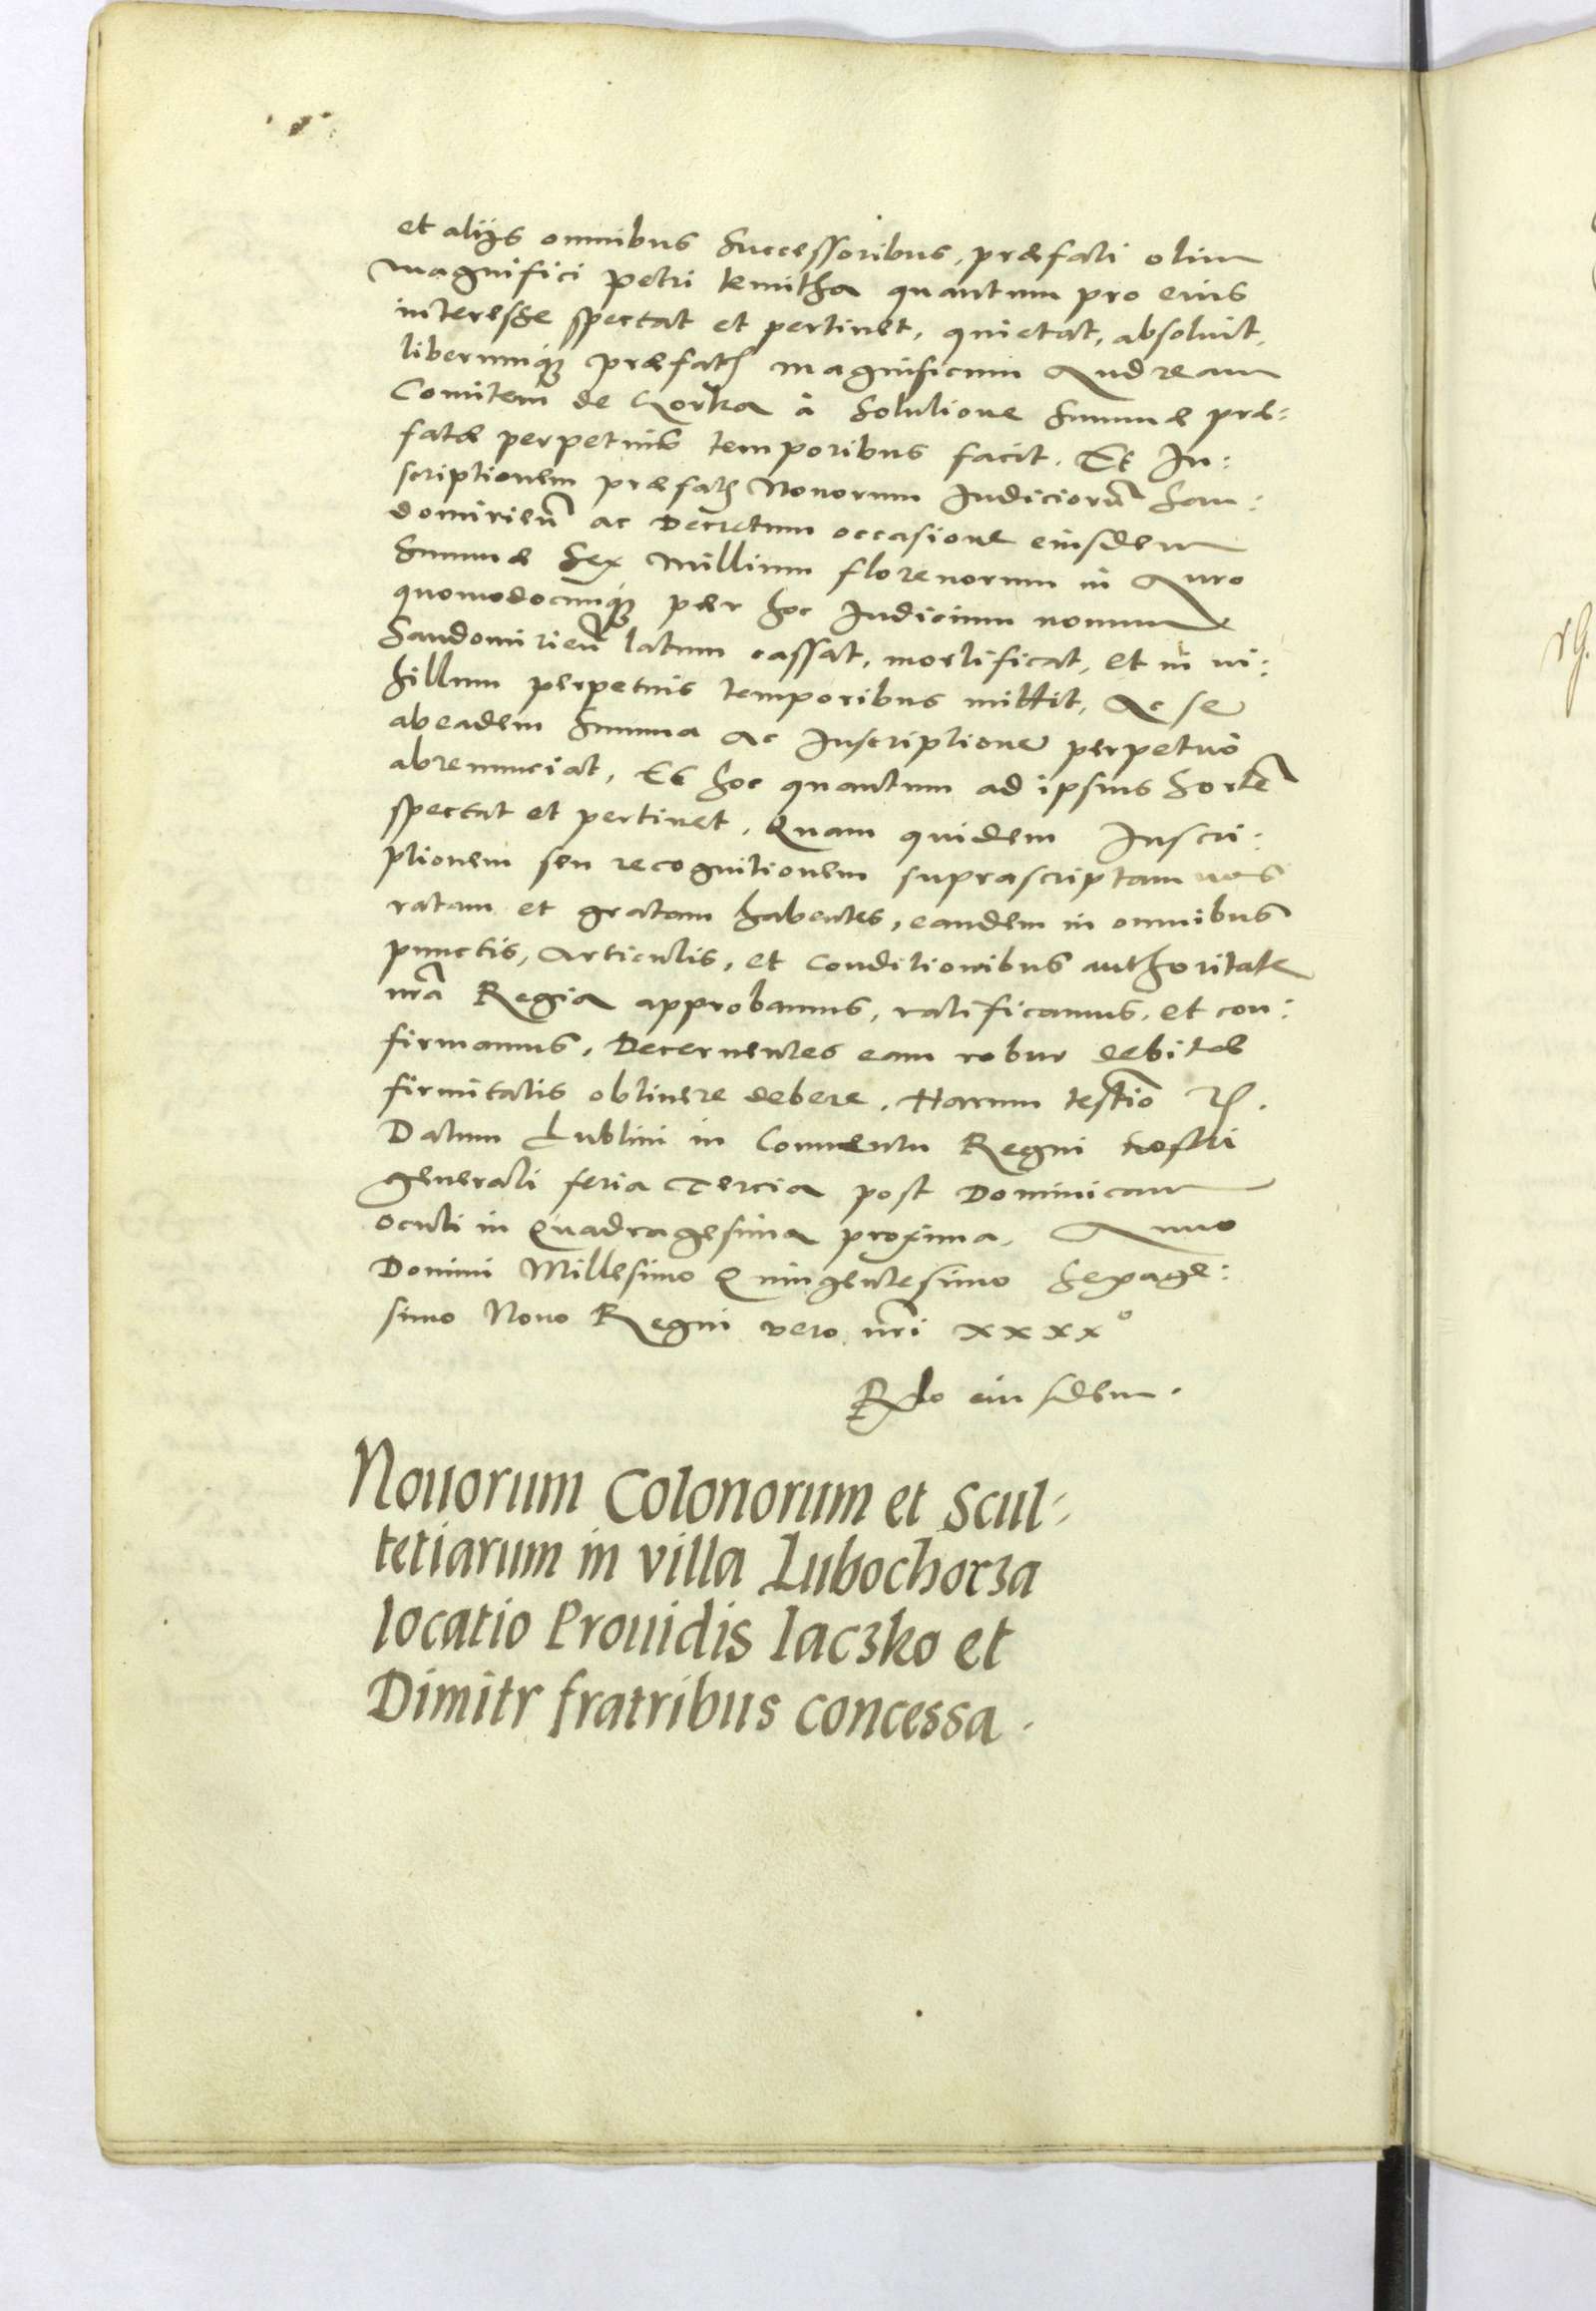 et alijs omnibus Successoribus, præfati olim
Magnifici Petri kmitha quantum pro eius
interesse spectat et pertinet, quietat, absoluit,
liberumq præfat Magnificum Andream
Comitem de Gorka à Solutione Summæ præ:
fatæ perpetuis temporibus facit. Et In:
scriptionem præfat Nouorum Judicioru San:
domirien ac Decretum occasione eiusdem
Summæ Sex Millium florenorum in Auro
quomodocunq per hoc Judicium nouum
Sandomirien latum cassat, mortificat, et in ni:
hillum perpetuis temporibus mittit, Ac se
ab eadem Summa Ac Inscriptione perpetuò
abrenunciat, Et hoc quantum ad ipsius Sorte
spectat et pertinet. Quam quidem Inscri:
ptionem seu recognitionem suprascriptam nos
ratam et gratam habentes, eandem in omnibus
punctis, Articulis, et Conditionibus authoritate
nra Regia approbamus, ratificamus, et con:
firmamus, Decernentes eam robur debitæ
firmitatis obtinere debere. Harum testio
Datum Lublini in Conuentu Regni nostri
generali feria Tercia post Dominicam
Oculi in Quadragesima proxima, Anno
Domini Millesimo Quingentesimo Sexage:
simo Nono Regni vero nri xxxx°
Rlo eiusdem.
Nouorum Colonorum et Scul-
tetiarum in villa Lubochorza
locatio Prouidis Iaczko et
Dimitr fratribus concessa.